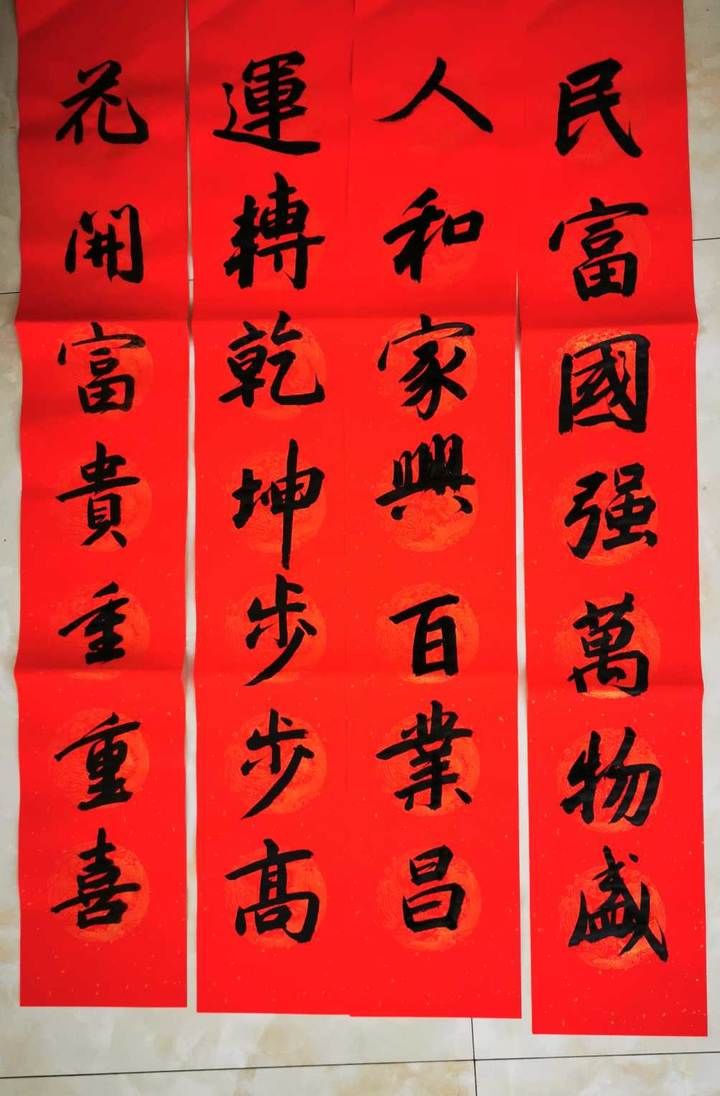 民富國强萬物盛
人和家興百業昌
運轉乾坤步步高
花開富貴重重喜